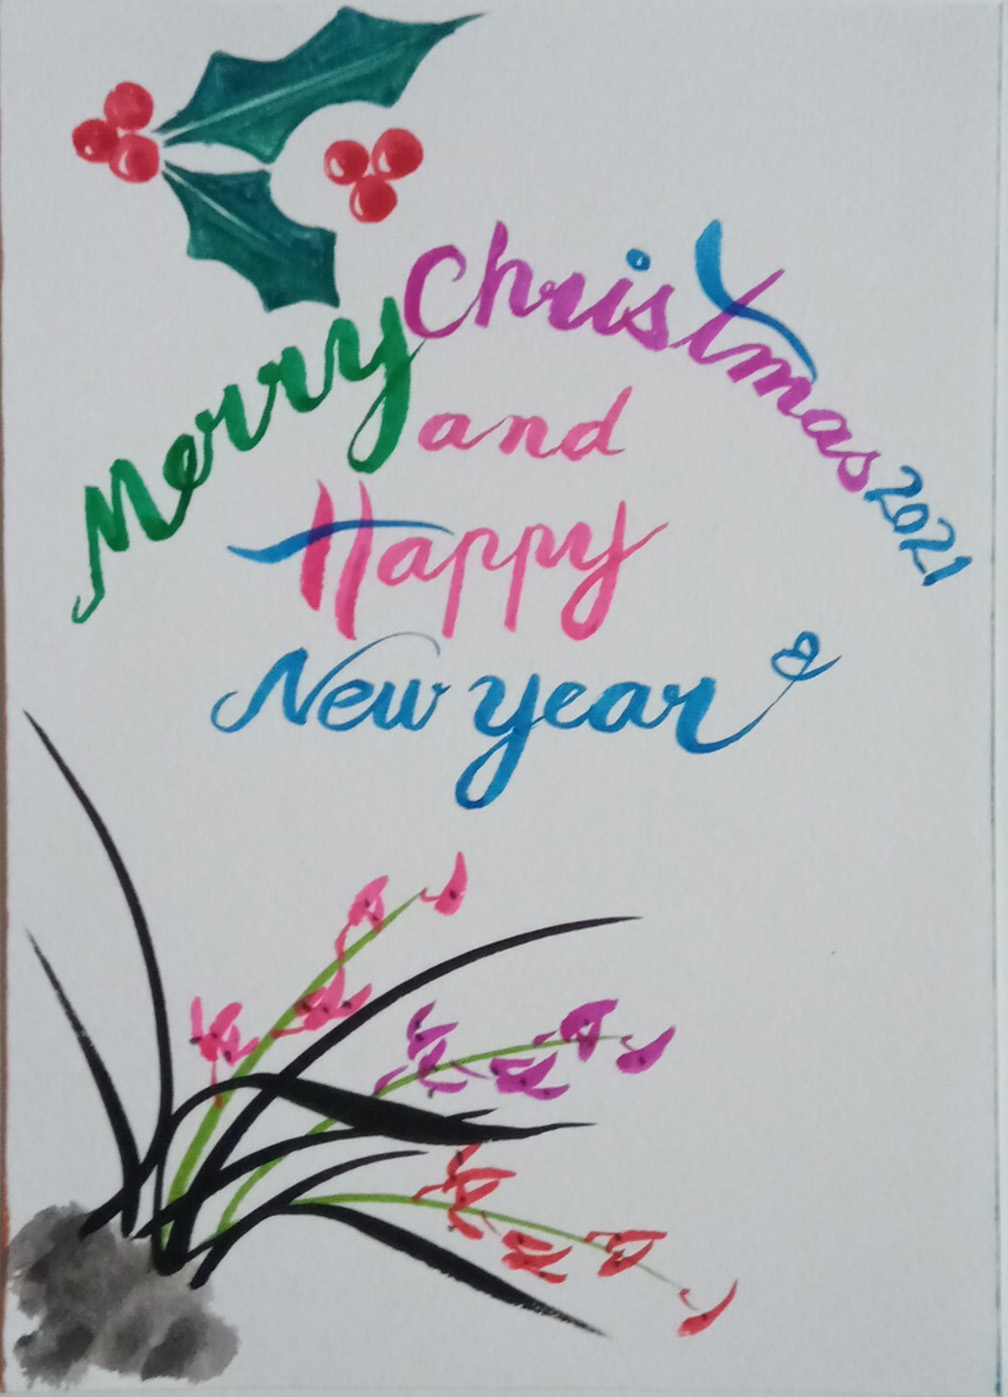 Merry Christmas 2021
and
Happy
New year